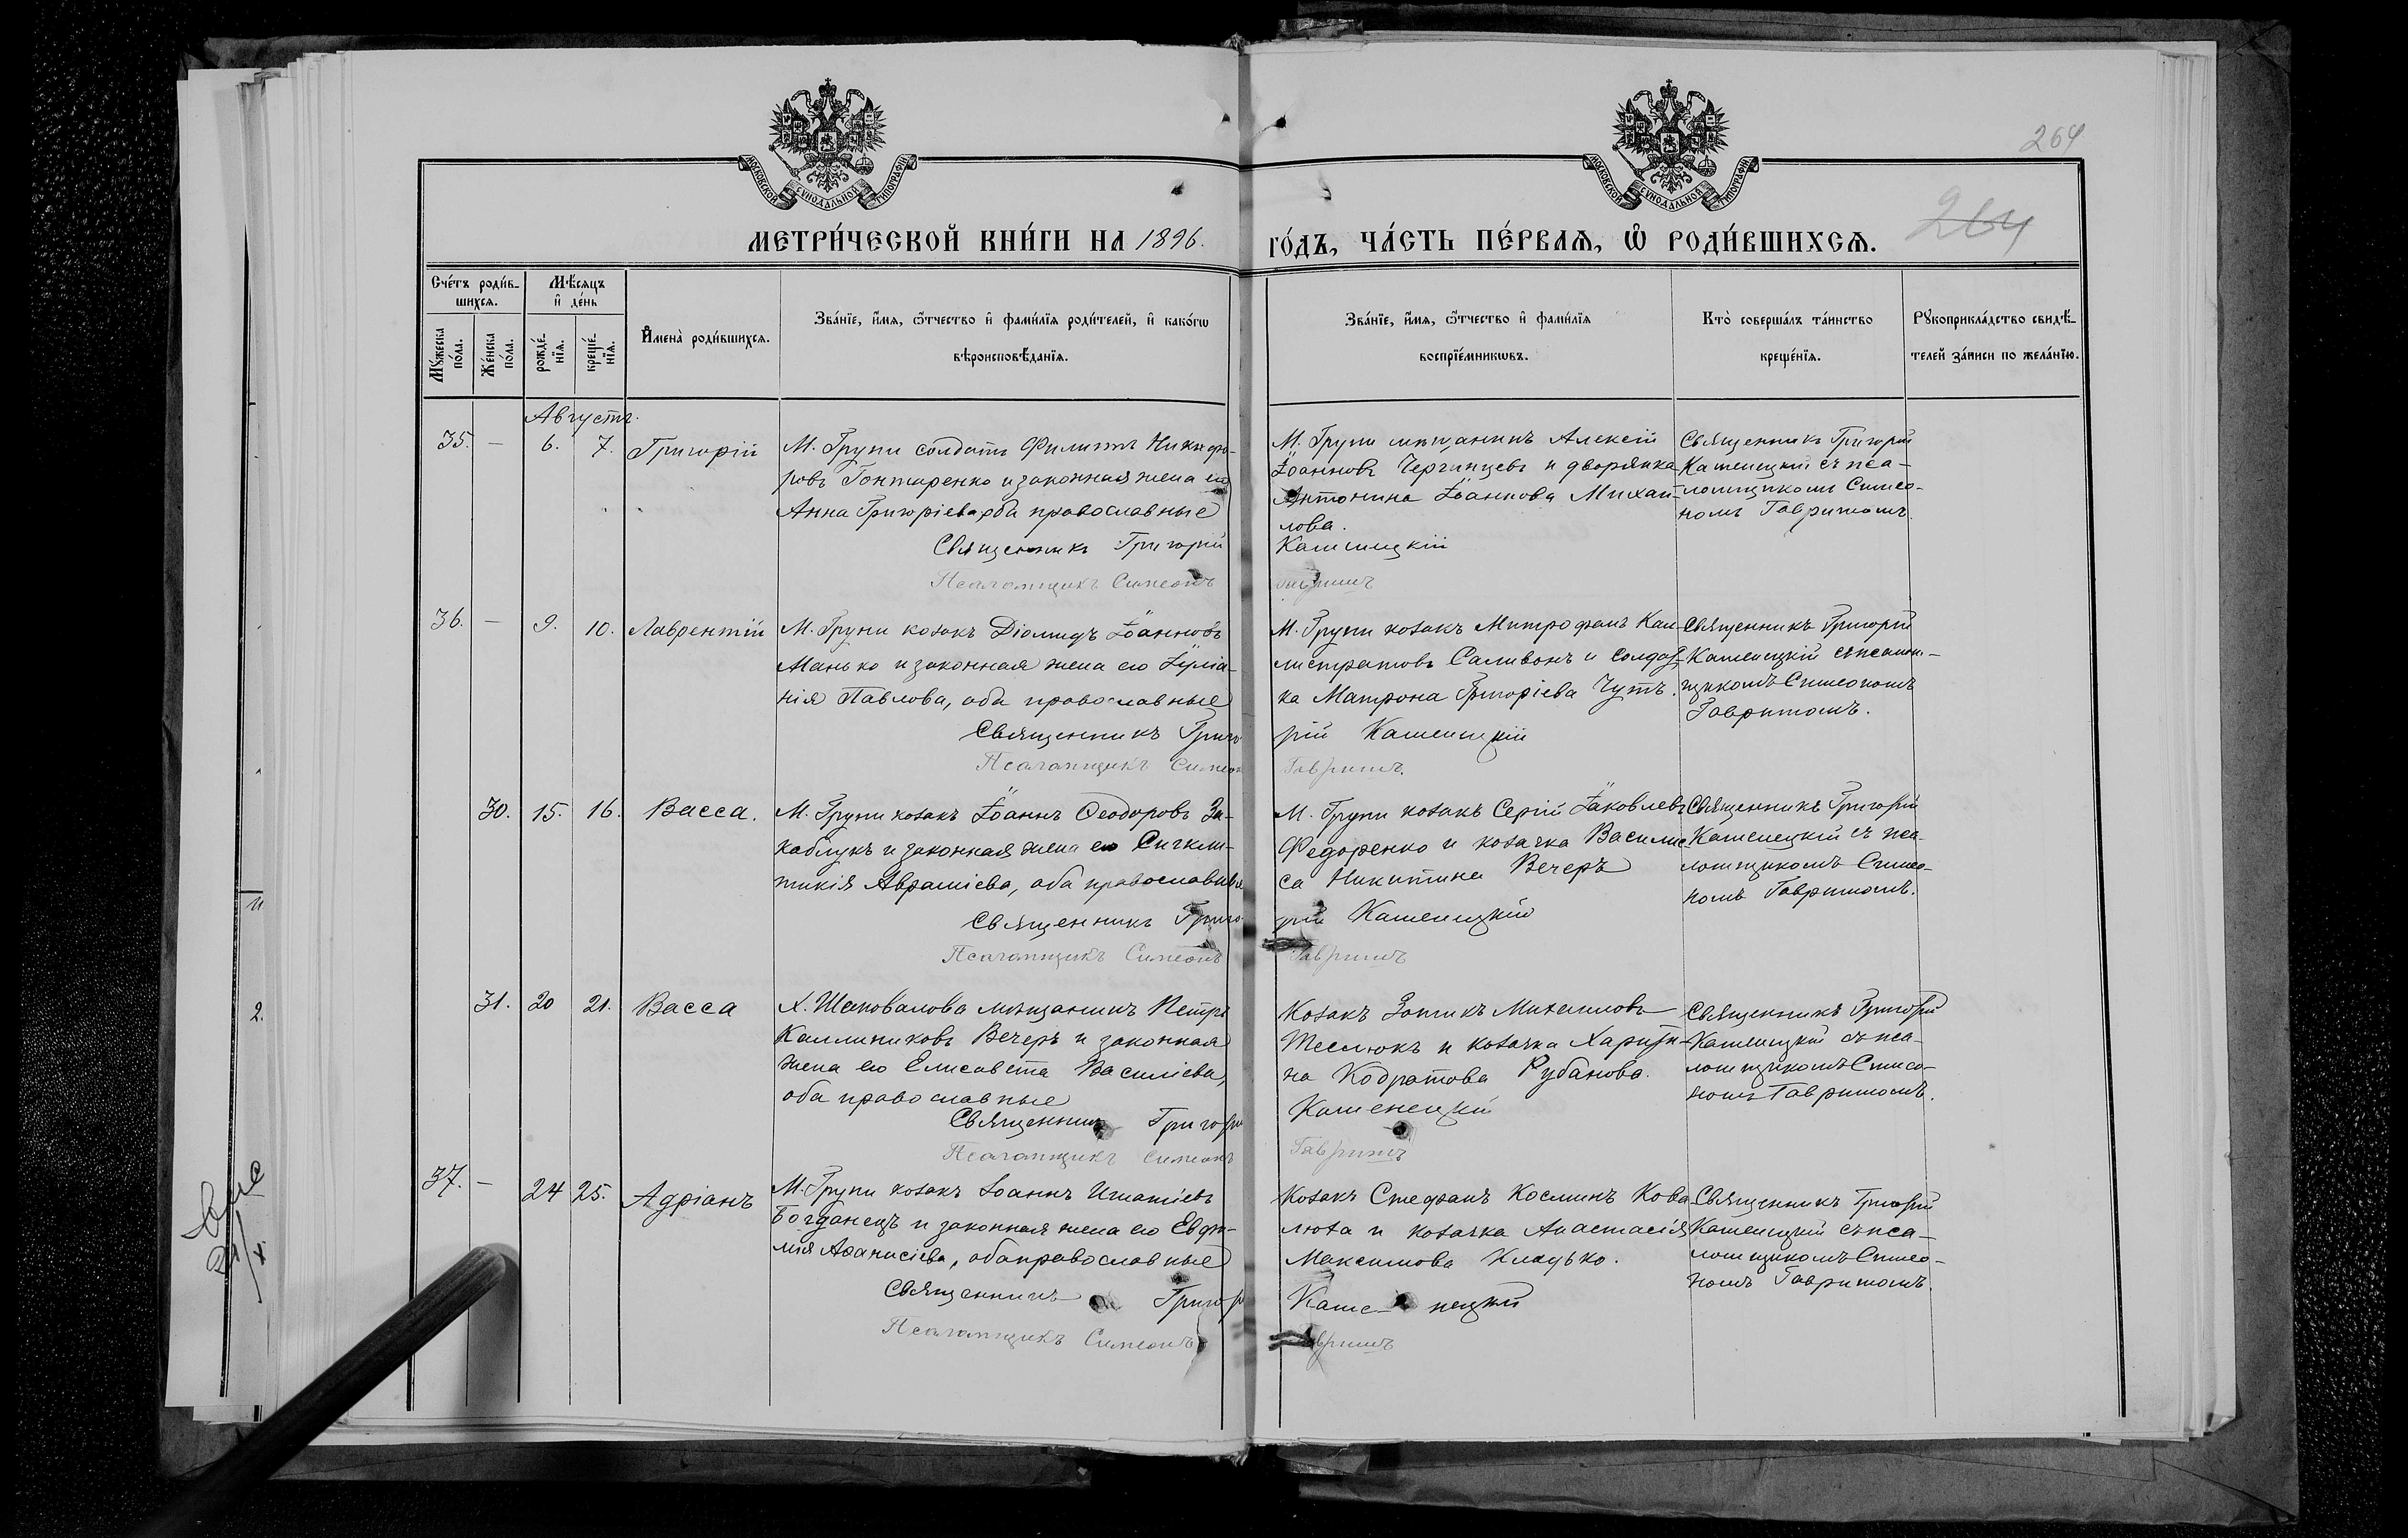 МОСКОВСКОЙ СѴНОДАЛЬНОЙ ТИПОГРАФІИ
МОСКОВСКОЙ СѴНОДАЛЬНОЙ ТИПОГРАФІИ
264
264
МЕТРИ́ЧЕСКОЙ КНИ́ГИ НА 1896.
ГО́ДЪ, ЧА́СТЬ ПЕ́РВАѦ, Ѽ РОДИ́ВШИХСѦ.
Сче́тъ роди́в-
шихсѧ.
Мѣ́сѧцъ
и҆ де́нь
Мꙋ́жеска
по́ла.
Же́нска
по́ла.
рожде́-
нїѧ.
креще́-
нїѧ.
И҆мена̀ роди́вшихсѧ.
Зва́нїе, и҆́мѧ, ѻ҆́тчество и҆ фами́лїѧ роди́телей, и҆ како́гѡ
вѣроисповѣ́данїѧ.
Зва́нїе, и҆́мѧ, ѻ҆́тчество и҆ фами́лїѧ
воспрїе́мникѡвъ.
Кто̀ соверша́лъ та́инство
креще́нїѧ.
Рꙋкоприкла́дство свидѣ́-
телей за́писи по жела́нїю.
Августъ.
35. — 6. 7. Григорій
М. Груни солдатъ Филиппъ Никифо-
ровъ Гонтаренко и законная жена его
Анна Григоріева, оба православные
Священникъ Григорій
Псаломщикъ Симеонъ
М. Груни мѣщанинъ Алексій
Іоанновъ Чергинцевъ и дворянка
Антонина Іоаннова Михай-
лова.
Каменецкій
Гавришъ
Священникъ Григорій
Каменецкій съ пса-
ломщикомъ Симео-
номъ Гавришомъ.
36. — 9. 10. Лаврентій
М. Груни козакъ Діомидъ Іоанновъ
Манько и законная жена его Іуліа-
нія Павлова, оба православные
Священникъ Григо
Псаломщикъ Симеон
М. Груни козакъ Митрофанъ Кал-
листратовъ Саливонъ и солдат-
ка Матрона Григоріева Чутъ.
рій Каменецкій
Гавришъ.
Священникъ Григорій
Каменецкій съ псалом-
щикомъ Симеономъ
Гавришомъ.
30. 15. 16. Васса.
М. Груни козакъ Іоаннъ Ѳеодоровъ За-
каблукъ и законная жена его Сигкли-
тикія Авраміева, оба православные
Священникъ Григо
Псаломщикъ Симеонъ
М. Груни козакъ Сергій Іаковлевъ
Федоренко и козачка Васили-
са Никитина Вечеръ
рій Каменецкій
Гавришъ
Священникъ Григорій
Каменецкій съ пса-
ломщикомъ Симео-
номъ Гавришомъ.
31. 20 21. Васса
Х. Шаповалова мѣщанинъ Петръ
Каллиниковъ Вечеръ и законная
жена его Елисавета Василіева,
оба православные
Священникъ Григорій
Псаломщикъ Симеонъ
Козакъ Зотикъ Михаиловъ
Теслюкъ и козачка Харити-
на Кодратова Рубанова.
Каменецкій
Гавришъ
Священникъ Григорій
Каменецкій съ пса-
ломщикомъ Симео-
номъ Гавришомъ.
37. — 24 25. Адріанъ
М. Груни козакъ Іоаннъ Игнатіевъ
Богданецъ и законная жена его Евфи-
мія Аѳанасіева, оба православные
Священникъ Григор
Псаломщикъ Симеонъ
Козакъ Стефанъ Косминъ Кова-
люта и козачка Анастасія
Максимова Кладько.
Каме- нецкій
Гавришъ
Священникъ Григорій
Каменецкій съ пса-
ломщикомъ Симео-
номъ Гавришомъ.
2.